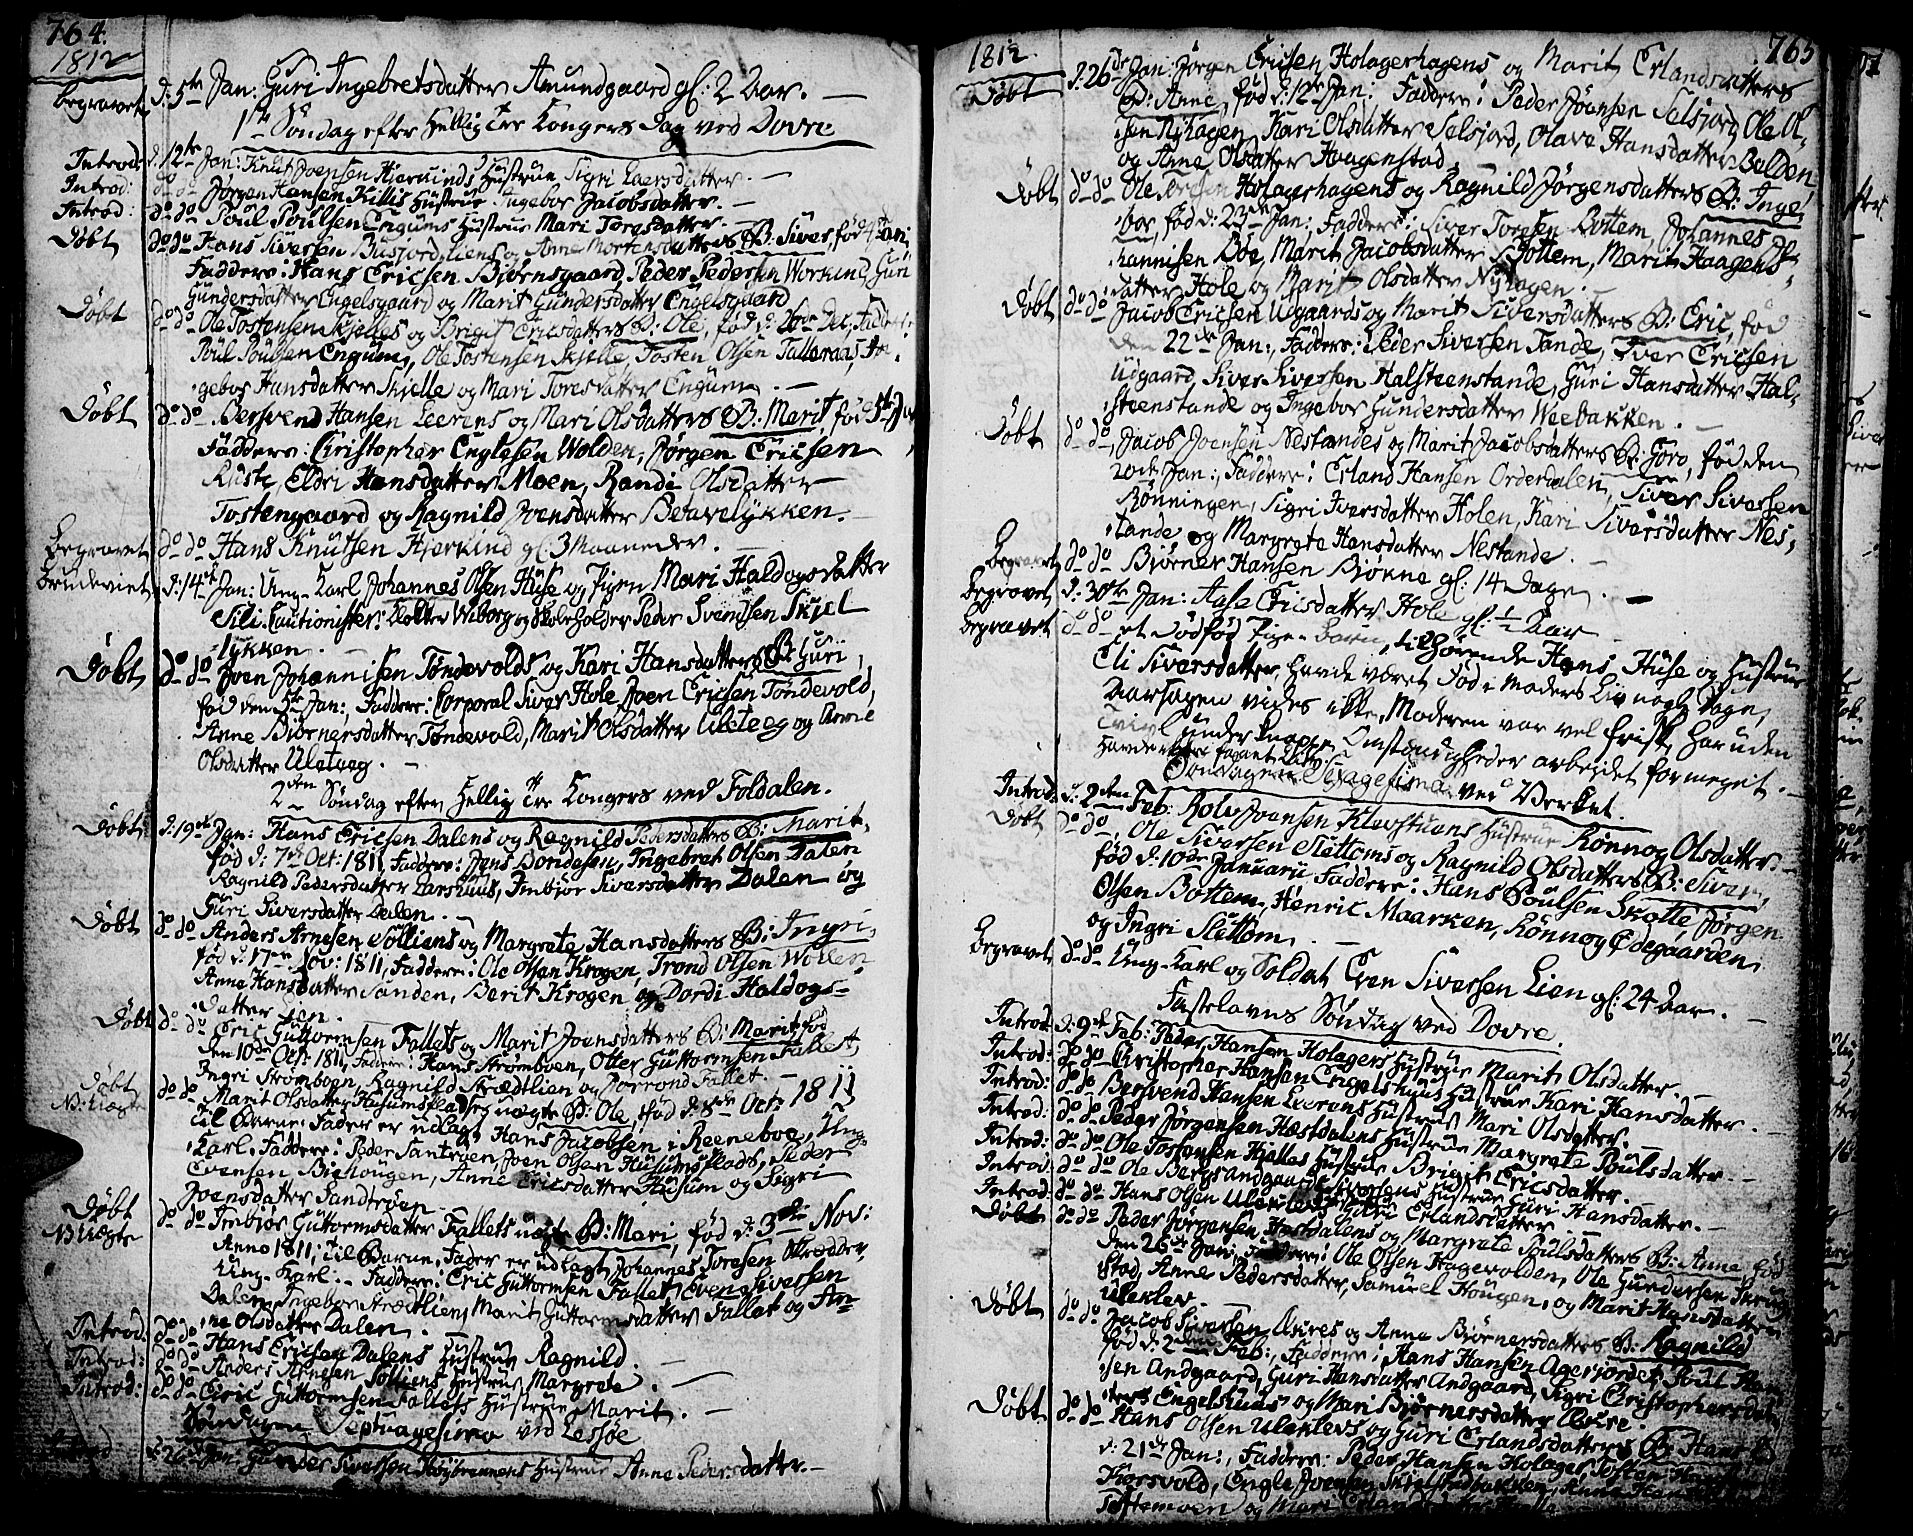 764.
1812
begravet d: 5te Jan: Guri Ingebretsdatter Amundgaard gl: 2 Aar. —
1ste Søndag efter Hellig Tre Kongers Dag ved Dovre
Introd: d: 12te Jan: Knut Joensen Hjerkinds Hustrue Sigri Laersdatter. —
Introd: do do Jørgen Hansen Killis Hustrue Ingebor Jacobsdatter. —
Introd: do do Poul Poulsen Engums Hustrue Mari Toresdatter. —
Døbt do do Hans Siversen Busjordliens og Anne Mortensdatters B: Siver, fød 4 Jan:
Faddere: Hans Ericsen Bjørnsgaard, Peder Pedersen Workind, Guri
Gundersdatter Engelsgaard og Marit Gundersdatter Engelsgaard
Døbt do do Ole Tostensen Skjelles og Briget Ericsdatters B: Ole, fød d: 26de Dec: Faddere:
Poul Poulsen Engum, Ole Tostensen Skjelle, Tosten Olsen Talleraas, In-
gebor Hansdatter Skjelle og Mari Toresdatter Engum. —
Døbt do do Bersvend Hansen Leerens og Mari Olsdatters B: Marit, fød 5te Jan
Faddere: Christopher Englesen Wolden, Jørgen Ericsen
Ruste, Eldri Hansdatter Moen, Randi Olsdatter
Tostengaard og Ragnild Joensdatter Bevavelykken. —
Begravet do do Hans Knutsen Hjerkind gl: 3 Maaneder. —
Brudeviet d: 14de Jan: Ung-Karl Johannes Olsen Huse og Pigen Mari Haldogsdatter
Sili. Cautionister: Klokker Wiborg og Skoleholder Peder Svendsen Skjel-
lykken. —
Døbt do do Joen Johannisen Tøndevolds og Kari Hansdatters B: Guri,
fød den 5te Jan:, Faddere: Corporal Siver Hole, Joen Ericsen Tøndevold,
Anne Bjørnersdatter Tøndevold, Marit Olsdatter Uleteeg og
Olsdatter Uleteeg. —
2den Søndag efter Hellig Tre Kongers ved Foldalen.
Døbt d: 19de Jan: Hans Ericsen Dalens og Ragnild Pedersdatters B: Marit,
fød d: 7de Oct: 1811, Faddere: Jens Dordesen, Ingebret Olsen Dalen
Ragnild Pedersdatter Barshuus, Imbjør Siversdatter Dalen og
Guri Siversdatter Dalen. —
Døbt do do Anders Arnesen Solliens og Margrete Hansdatters B: Ingri,
fød d: 17en Nov: 1811, Faddere: Ole Olsen Krogen, Trond Olsen Wollen
Anne Hansdatter Sanden, Berit Krogen og Dordi Haldogs-
datter Lien. —
Døbt do do Eric Guttormsen Fallets og Marit Joensdatters B: Marit fød
den 10de Oct: 1811, Faddere: Hans Strømboen, Otter Guttormsen Fallet,
Ingri Strømboen, Ragnild Strædtlien og Torrond Fallet. —
Døbt do do Marit Olsdatter Husumsplads, uægte B: Ole, fød d: 8de Oct: 1811
NB: Uægte Til Barne-Fader er udlagt Hans Jacobsen i Reeneboe, Ung-
Karl. Faddere: Peder Santrøen, Joen Olsen Husumsplads, Peder
Evensen Biehougen, Anne Ericsdatter Husum og Sigri
Joensdatter Sandtrøen. —
Døbt do do Imbjør Guttormsdatter Fallets uægte B: Mari, fød d: 3de Nov:
NB Uægte Anno 1811, Til Barne-Fader er udlagt Johannes Toresen Strædder,
Ung-Karl. - Faddere: Eric Guttormsen Fallet, Even Siversen
Dalen, Ingebor Strædtlien, Marit Guttormsdatter Fallet og An-
ne Olsdatter Dalen.
Introd: do do Hans Ericsen Dalens Hustrue Ragnild. —
Introd: do do Anders Arnesen Solliens Hustrue Margrete. —
Introd: do do Eric Guttormsen Fallets Hustrue Marit. —
Søndagen Septuagesima ved Lessøe
Introd: d: 26de Jan: Gunder Siversen Hustrue Anne Pedersdatter. —
1812 765
Døbt d: 26de Jan: Jørgen Ericsen Holagerhagens og Marit Erlandsdatters
B: Anne, fød d: 12te Jan: Faddere: Peder Joensen Selsjord, Ole Ol-
sen Nyhagen, Kari Olsdatter Selsjord, Olave Hansdatter Balden
og Anne Olsdatter Haagenstad.
Døbt do do Ole Holagerhagens og Ragnild Jørgensdatters B: Inge-
bor, fød d: 23de Jan: Faddere: Siver Torgsen Bottem, Johannes Jo-
hannisen Bøe, Marit Jacobsdatter Bottem, Marit Haagens-
datter Hole og Marit Olsdatter Nyhagen.
Døbt do do Jacob Ericsen Udgaards og Marit Siversdatters B: Eric, fød
den 22de Jan:, Faddere: Peder Siversen Tande, Iver Ericsen
Udgaard, Siver Siversen Halsteenstande, Guri Hansdatter Hal-
steenstande og Ingebor Gundersdatter Weebakken. —
Døbt do do Jacob Joensen Nestandes og Marit Jacobsdatters B: Goro, fød den
20de Jan:, Faddere: Erland Hansen Orderdalen, Siver Siversen
Bønningen, Sigri Iversdatter Holen, Kari Siversdatter Nes-
tande og Margrete Hansdatter Nestande. —
Begravet do do Bjørner Hansen Bjøkne gl: 14 Dage. —
Begravet d: 30te Jan: Aase Ericsdatter Hole gl: ½ Aar —
Begravet do do et Dødfød Pige-barn, tilhørende Hans Huse og Hustrue
Eli Siversdatter, havde været død i Moders Liv nogle Dage,
Aarsagen vides ikke, Moderen var vel frisk, har uden
Tvivl under Omstændigheder arbeidet for meget. —
Søndagen Sexagesima ved Verket.
Introd: d: 2den Feb: Rolv Joensen Klevstuens Hustrue Rønnog Olsdatter. —
Døbt do do, Ole Siversen Slettoms og Ragnild Olsdatters B: Siver,
fød d: 10de Januarii Faddere: Hans Poulsen Skotte, Jørgen
Olsen Bottem, Henric Maarken, Rønnog Ødegaarden
og Ingri Slettom. —
Begravet do do Ung-Karl og Soldat Even Siversen Lien gl: 24 Aar. —
Fastelavns Søndag ved Dovre.
Introd: d: 9de Feb: Peder Hansen Holagers Hustrue Marit Olsdatter. —
Introd: do do Christopher Hansen Engelshuus Hustrue Kari Hansdatter. —
Introd: do do Bersvend Hansen Leerens Hustrue Mari Olsdatter. —
Introd: do do Peder Jørgensen Hæstdalens Hustrue Margrete Poulsdatter. —
Introd: do do Ole Tostensen Skjelles Hustrue Briget Ericsdatter. —
Introd: do do Ole Hustrue Guri Hansdatter. —
Introd: do do Hans Olsen Uleklevs Guri Erlandsdatter —
Døbt do do Peder Jørgensen Hæstdalens og Margrete Poulsdatters B: Anne, fød
den 26de Jan:, Faddere: Ole Olsen Hagevolden, Ole Gundersen
stad, Anne Pedersdatter, Samuel Hougen, og Marit Hansdatter
Uleklev. —
Døbt do do Jacob Siversen og Anne Bjørnersdatters B: Ragnild
fød d: 2den Feb:, Faddere: Hans Hansen Agerjordet, Poul Han-
sen Andgaard, Guri Hansdatter Andgaard, Sigri Christophersdat-
ter Engelshuus og Mari Bjørnersdatter
Døbt do do Hans Olsen Uleklevs og Guri Erlandsdatters B: Hans
d: 21de Jan:, Faddere: Peder Hansen Holager, Tosten
Korsvold, Engle Joensen
Toftemoen og Mari